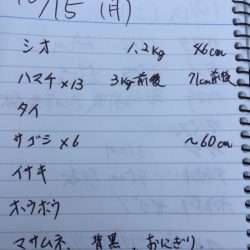 10/15 (月)
シオ 1.2kg 46cm
ハマチ×13 3kg前後 71cm前後
タイ
サゴシ×6 ~60cm
イサキ
ホウボウ
マサムネ、背黒、おにぎり